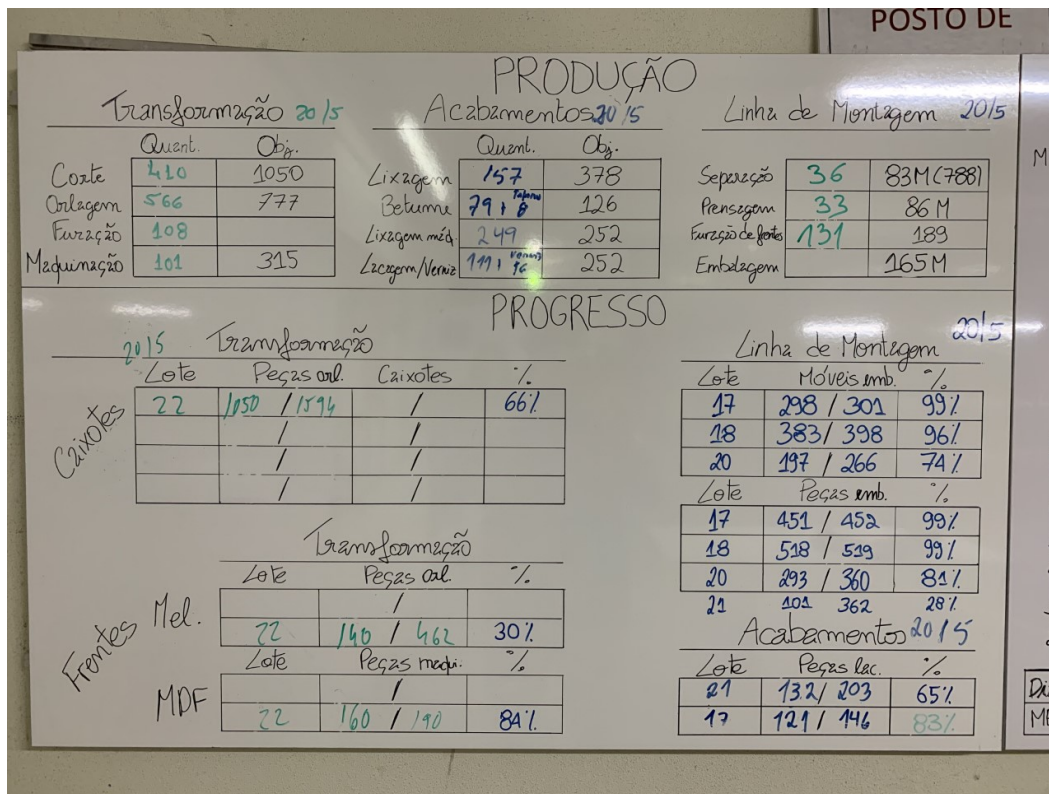 POSTO DE
PRODUÇÃO
Transformação 20/5
Quant. Obj.
Corte 410 1050
Orlagem 566 777
Furação 108
Maquinação 101 315
Acabamentos 20/5
Quant. Obj.
Lixagem 157 378
Betume 79 + 8 126
Lixagem méd. 249 252
Lacagem/Verniz 111 + Verniz 16 252
Linha de Montagem 20/5
Separação 36 83M(788)
Prensagem 33 86M
Furação de fontes 131 189
Embalagem 165M
PROGRESSO
20/5 Transformação
Lote Peças orl. Caixotes %
Caixotes
22 1050 / 1594 / 66%
/ /
/ /
/ /
Transformação
Frentes
Mel.
Lote Peças orl. %
/
22 140 / 462 30%
MDF
Lote Peças maqui. %
/
22 160 / 190 84%
Linha de Montagem 20/5
Lote Móveis emb. %
17 298 / 301 99%
18 383 / 398 96%
20 197 / 266 74%
Lote Peças emb. %
17 451 / 452 99%
18 518 / 519 99%
20 293 / 360 81%
21 101 362 28%
Acabamentos 20/5
Lote Peças lac. %
21 132 / 203 65%
17 121 / 146 83%
M
Di
ME